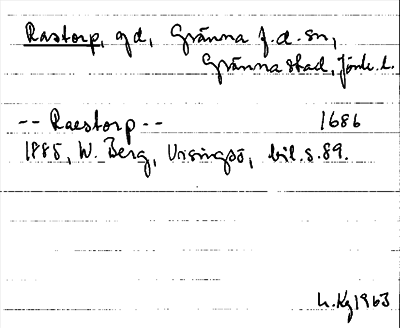 Rastorp, gd, Gränna f.d. sn,
Gränna stad, Jönk. l.
-- Raestorp -- 1686
1885, W. Berg, Visingsö, bil. s. 89.
1963